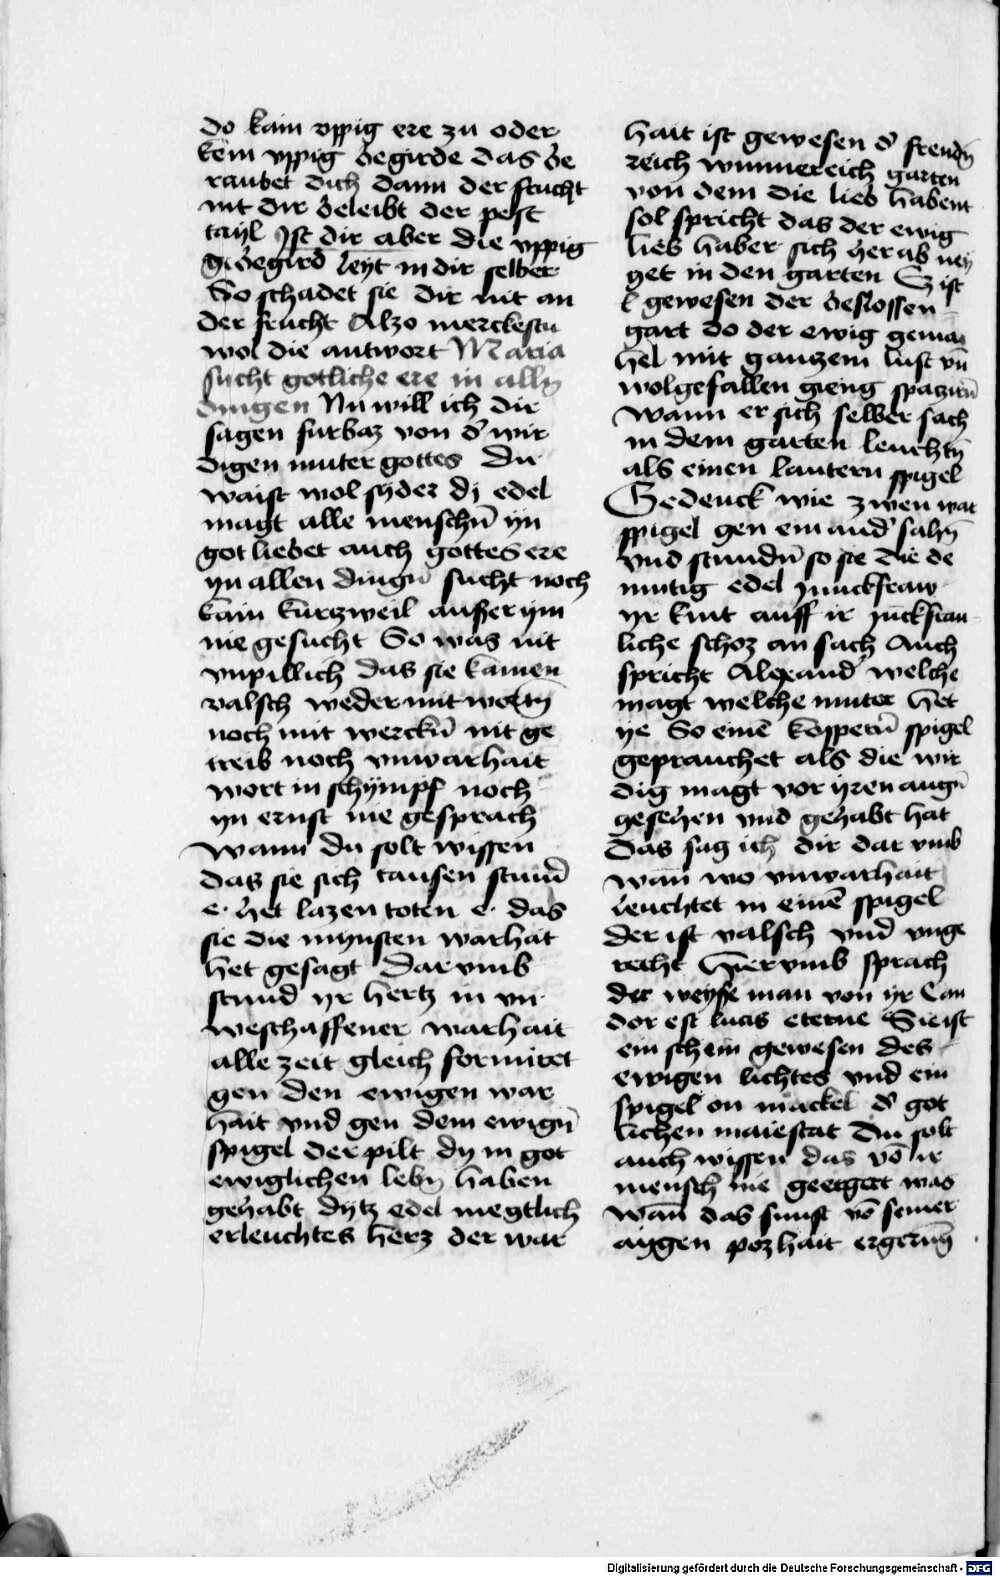 do kain vppig ere zu oder
kein vppig begirde das be
raubet dich dann der frucht
nit dir beleibt der pest
tayl Ist dir aber die vppig
begird leyt in dir selber
So schadet sie dir nit an
der frucht Alzo merckestu
wol die antwort Maria
sucht gotliche ere in alln̄
dingen Nu will ich dir
sagen furbaz von d' wir
digen muter gottes Du
waist wol syder dj edel
magt alle menschn̄ yn
got liebet auch gottes ere
yn allen dingn̄ sucht noch
kain kurtzweil ausser ym
nie gesucht So was nit
vnpillich das sie kainen
valsch weder mit wortn̄
noch mit werckn̄ nit ge
treib noch vnwarhait
wort in schympf noch
yn ernst nie gesprach
Wann du solt wissen
das sie sich tausen stund
e· het lazen toten e· das
sie die mynsten warhait
het gesagt Dar vmb
stund yr hertz in vn
weschaffener warhait
alle zeit gleich formiret
gen den ewigen war
hait vnd gen dem ewign̄
spigel der pilt dy in got
ewiglichen lebn̄ haben
gehabt dytz edel megtlich
erleuchtes hertz der war
hait ist gewesen d' freudn̄
reich wunnereich garten
von dem die lieb habent
sol spricht das der ewig
lieb haber sich her ab ney
get in den garten S ist
l gewesen der beslossen
gart do der ewig gema
hel mit gantzem lust vn̄
wolgefallen gieng spazirn̄
wann er sich selber sach
in dem garten leuchtn̄
als einen lautern spigel
Gedenck wie zwen war
spigel gen ein and' sahn̄
vnd stundn̄ so sie die de
mutig edel junckfraw
yr kint auff ir juckfrau
liche schoz an sach Auch
spricht Alexand' welche
magt welche muter het
ye So einē kospern̄ spigel
geprauchet als die wir
dig magt vor yren augn̄
gesehen vnd gehabt hat
Das sag ich dir dar vmb
wan̄ wo vnwarhait
leuchtet in einē spigel
der ist valsch vnd vnge
recht Hier vmb sprach
der weyse man von yr Can
dor est lucis eterne Sie ist
ein schein gewesen des
ewigen lichtes vnd ein
spigel on mackel d' got
lichen maiestat Du solt
auch wissen das vō ir
mensch nie geergert was
wan̄ das sunst vō seiner
aygen pozhait ergerun̄g
Digitalisierung gefördert durch die Deutsche Forschungsgemeinschaft - DFG